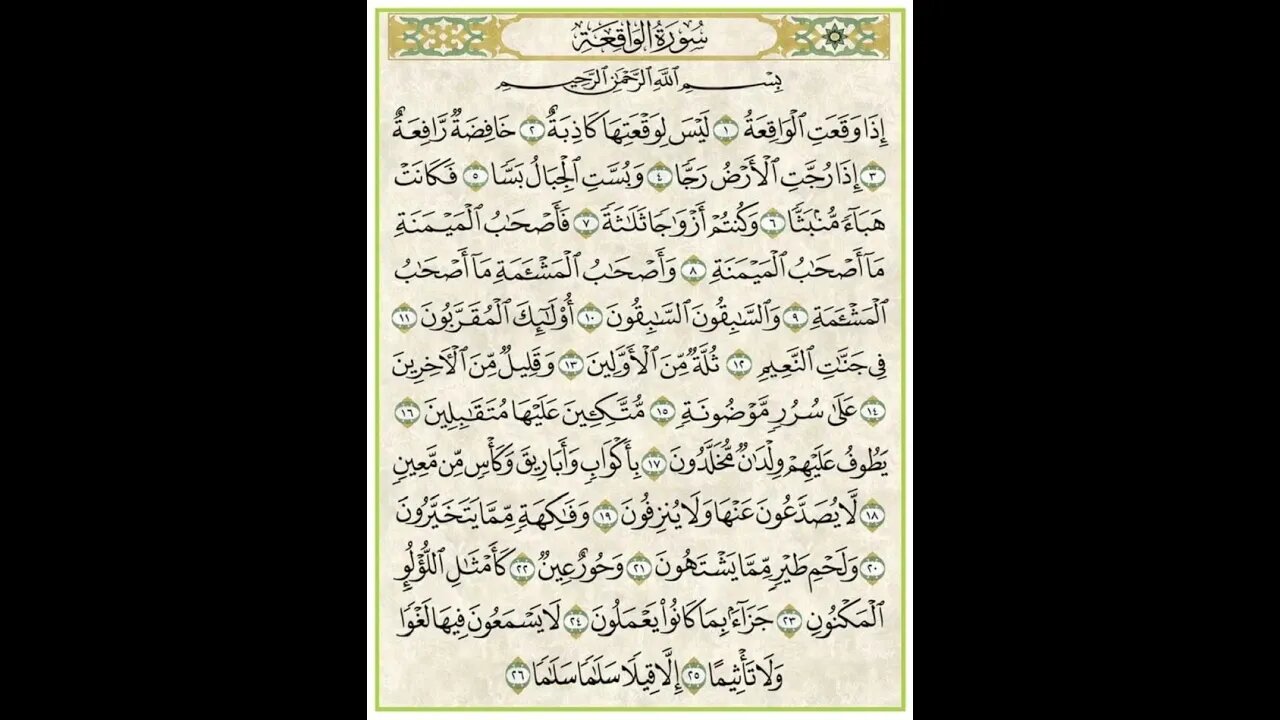 سُورَةُ الوَاقِعَةِ
بِسْمِ اللَّهِ الرَّحْمَٰنِ الرَّحِيمِ
إِذَا وَقَعَتِ ٱلْوَاقِعَةُ ١ لَيْسَ لِوَقْعَتِهَا كَاذِبَةٌ ٢ خَافِضَةٌ رَّافِعَةٌ
٣ إِذَا رُجَّتِ ٱلْأَرْضُ رَجًّا ٤ وَبُسَّتِ ٱلْجِبَالُ بَسًّا ٥ فَكَانَتْ
هَبَآءً مُّنۢبَثًّا ٦ وَكُنتُمْ أَزْوَٰجًا ثَلَٰثَةً ٧ فَأَصْحَٰبُ ٱلْمَيْمَنَةِ
مَآ أَصْحَٰبُ ٱلْمَيْمَنَةِ ٨ وَأَصْحَٰبُ ٱلْمَشْـَٔمَةِ مَآ أَصْحَٰبُ
ٱلْمَشْـَٔمَةِ ٩ وَٱلسَّٰبِقُونَ ٱلسَّٰبِقُونَ ١٠ أُو۟لَٰٓئِكَ ٱلْمُقَرَّبُونَ ١١
فِى جَنَّٰتِ ٱلنَّعِيمِ ١٢ ثُلَّةٌ مِّنَ ٱلْأَوَّلِينَ ١٣ وَقَلِيلٌ مِّنَ ٱلْءَاخِرِينَ
١٤ عَلَىٰ سُرُرٍ مَّوْضُونَةٍ ١٥ مُّتَّكِـِٔينَ عَلَيْهَا مُتَقَٰبِلِينَ ١٦
يَطُوفُ عَلَيْهِمْ وِلْدَٰنٌ مُّخَلَّدُونَ ١٧ بِأَكْوَابٍ وَأَبَارِيقَ وَكَأْسٍ مِّن مَّعِينٍ
١٨ لَّا يُصَدَّعُونَ عَنْهَا وَلَا يُنزِفُونَ ١٩ وَفَٰكِهَةٍ مِّمَّا يَتَخَيَّرُونَ
٢٠ وَلَحْمِ طَيْرٍ مِّمَّا يَشْتَهُونَ ٢١ وَحُورٌ عِينٌ ٢٢ كَأَمْثَٰلِ ٱللُّؤْلُؤِ
ٱلْمَكْنُونِ ٢٣ جَزَآءًۢ بِمَا كَانُوا۟ يَعْمَلُونَ ٢٤ لَا يَسْمَعُونَ فِيهَا لَغْوًا
وَلَا تَأْثِيمًا ٢٥ إِلَّا قِيلًا سَلَٰمًا سَلَٰمًا ٢٦